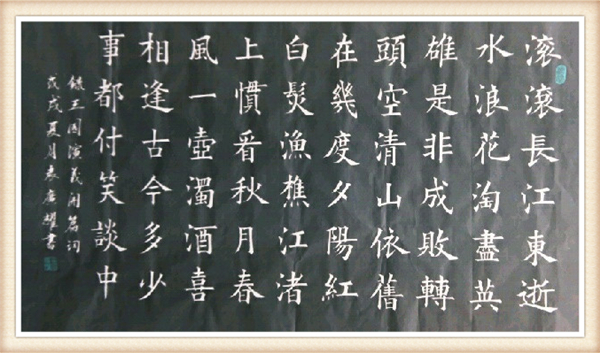 滚滚長江東逝
水浪花淘盡英
雄是非成敗轉
頭空清山依舊
在幾度夕陽紅
白髮漁樵江渚
上慣看秋月春
風一壺濁酒喜
相逢古今多少
事都付笑談中
錄三國演義開篇詞
戊戌夏月耀書